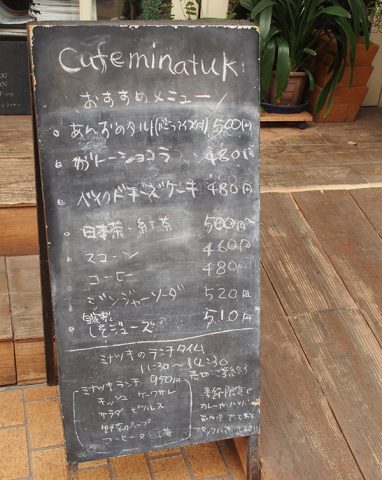 Cafeminatuki
おすすめメニュー
あんずのタルト(バニラアイス付) 500円
ガトーショコラ 480円
ベイクドチーズケーキ 480円
日本茶・紅茶 500円〜
スコーン 460円
コーヒー 480円
ジンジャーソーダ 520円
自家製
しそジュース 510円
ミナツキのランチタイム
11:30〜14:30
ミナツキランチ 950円
キッシュ ケークサレ
サラダ ピクルス
野菜のスープ
季節限定
カレー